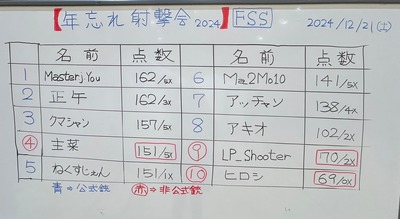 【年忘れ射撃会2024】 FSS 2024/12/21(土)
名前 点数 名前 点数
1 Master J You 162/5x 6 Ma2Mo10 141/5x
2 正午 162/3x 7 アッチャン 138/4x
3 クマシャン 157/5x 8 アキオ 102/2x
④ 主菜 151/5x ⑨ LP_Shooter 70/2x
5 ねくすじぇん 151/1x ⑩ ヒロシ 69/0x
青⇒公式銃 赤⇒非公式銃